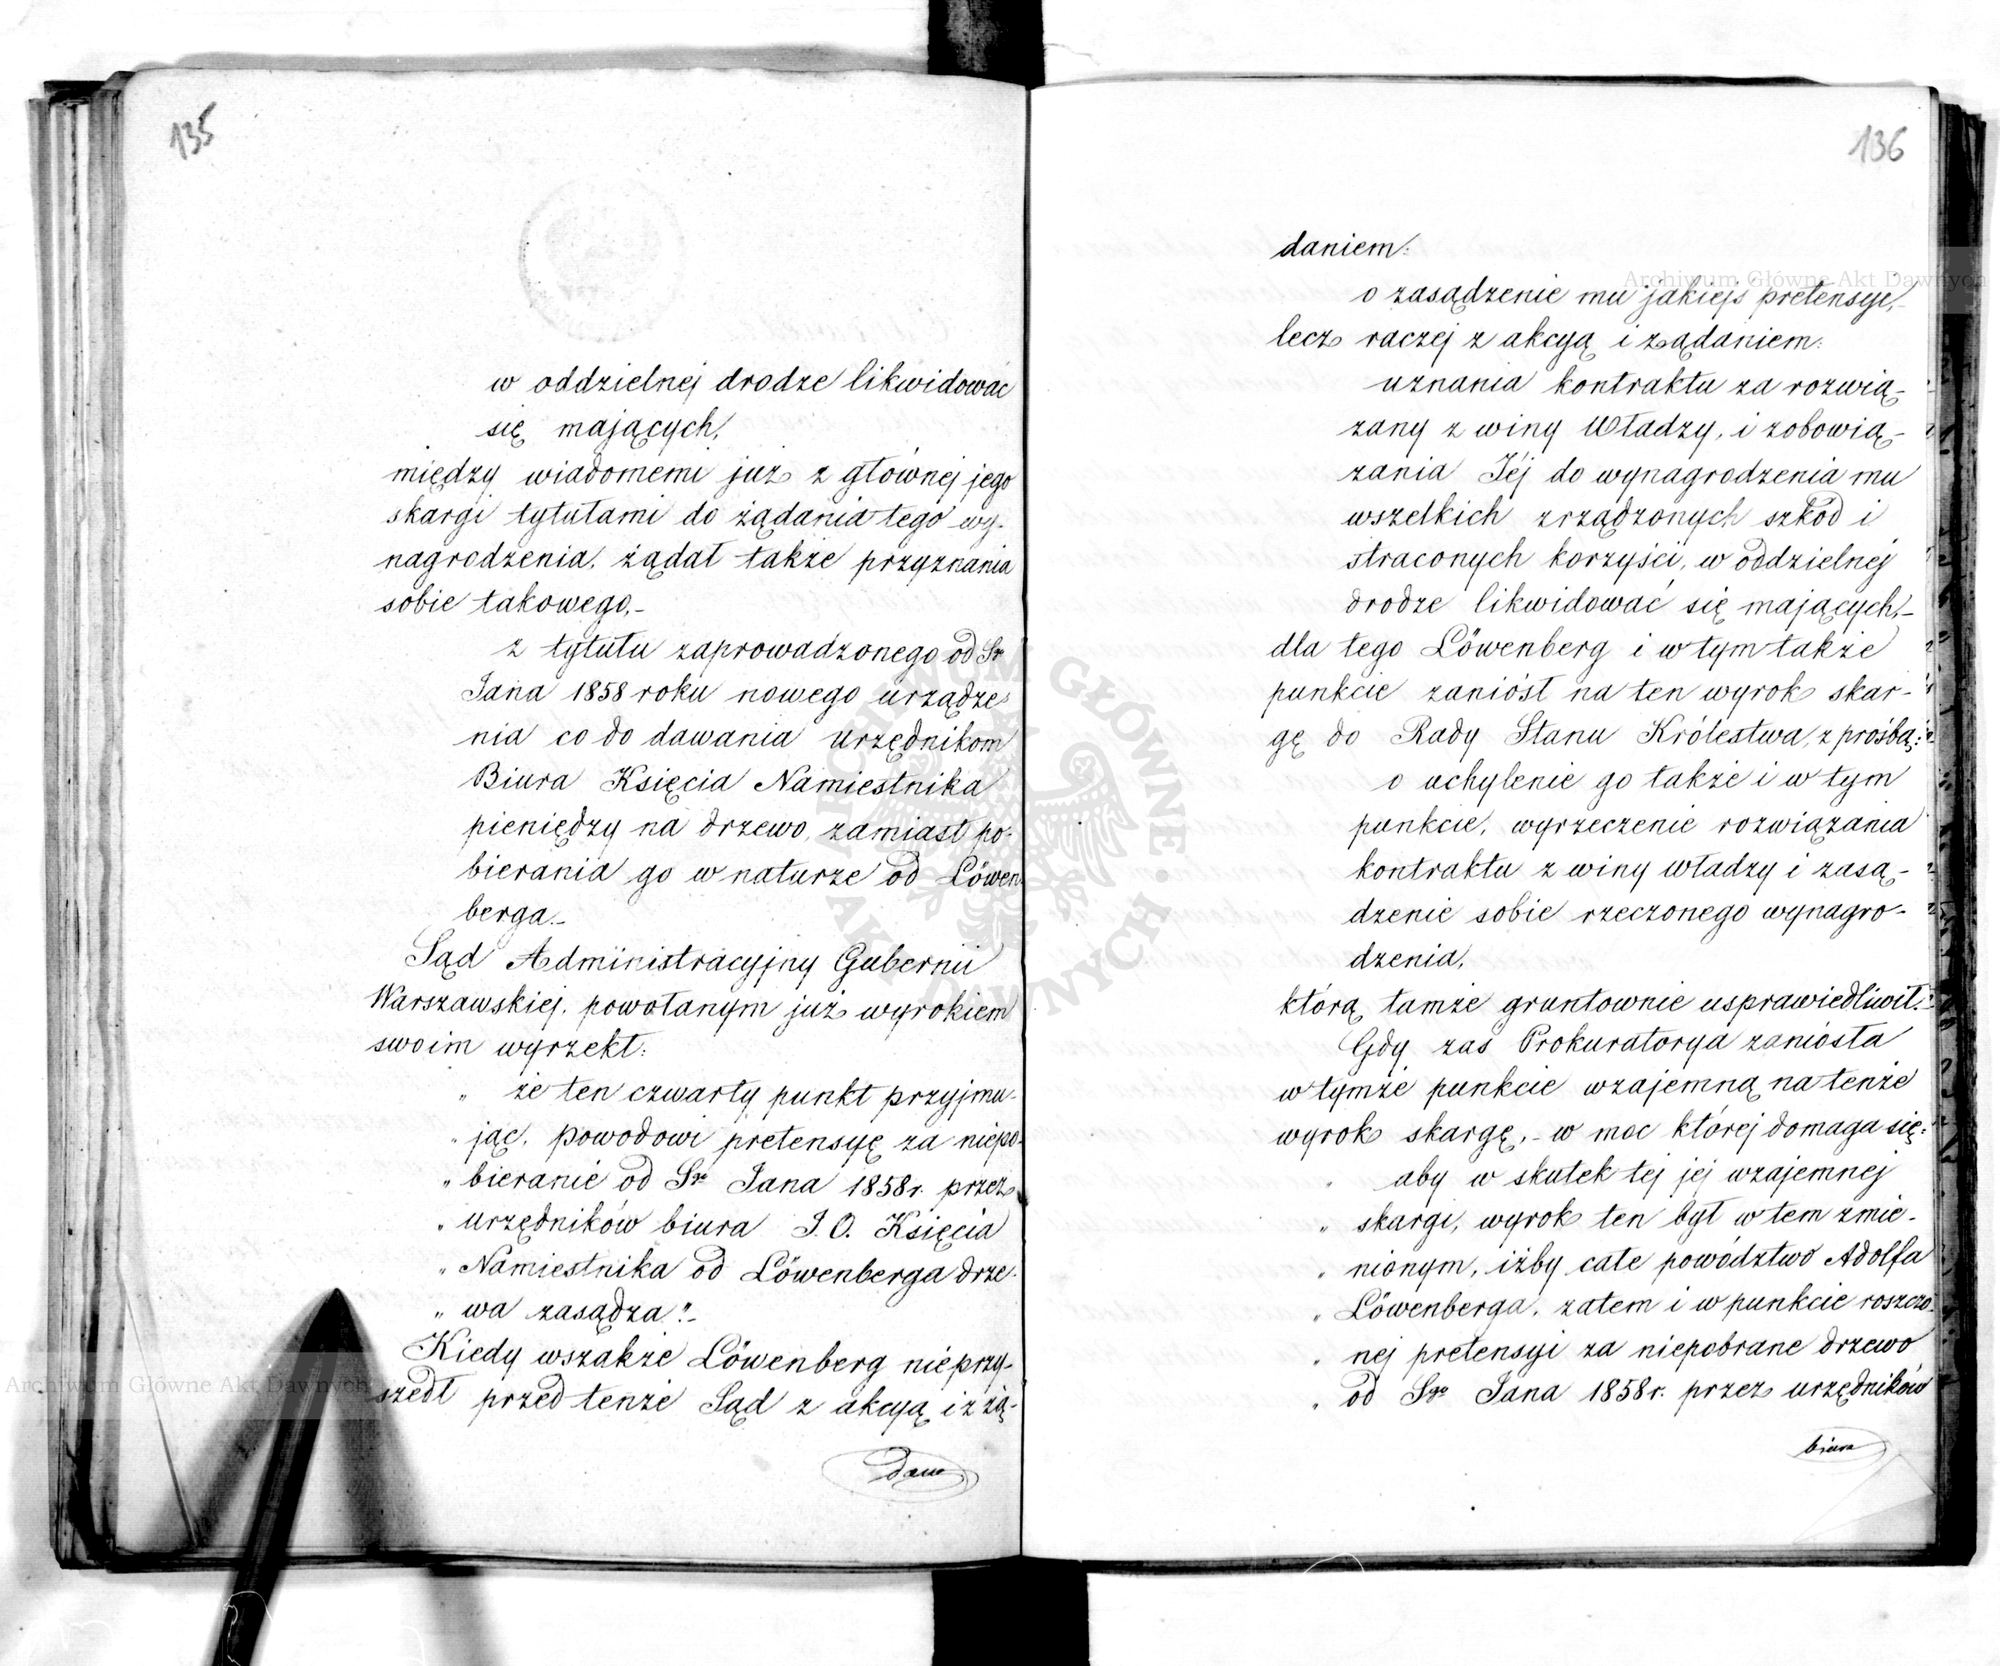 135
w oddzielnej drodze likwidować
się mających,
między wiadomemi już z głównej jego
skargi tytułami do żądania tego wy-
nagrodzenia, żądał także przyznania
sobie takowego,-
z tytułu zaprowadzonego od Sgo
Jana 1858 roku nowego urządze-
nia co do dawania urzędnikom
Biura Księcia Namiestnika
pieniędzy na drzewo, zamiast po-
bierania go w naturze od Löwen
berga.-
Sąd Administracyjny Gubernii
Warszawskiej, powołanym już wyrokiem
swoim wyrzekł:
„ że ten czwarty punkt przyjmu-
„ jąc, powodowi pretensyę za niepo-
„ bieranie od Sgo Jana 1858 r. przez
„ urzędników biura J. O. Księcia
„ Namiestnika od Löwenberga drze-
„ wa zasądza".-
Kiedy wszakże Löwenberg nieprzy-
szedł przed tenże Sąd z akcyą i z żą-
136
daniem:
o zasądzenie mu jakiejś pretensye,-
lecz raczej z akcyą i żądaniem:
uznania kontraktu za rozwią-
zany z winy Władzy, i zobowią-
zania Jéj do wynagrodzenia mu
wszelkich zrządzonych szkód i
straconych korzyści, w oddzielnej
drodze likwidować się mających,-
dla tego Löwenberg i w tym także
punkcie zaniósł na ten wyrok skar-
gę do Rady Stanu Królestwa, z prośbą:
o uchylenie go także i w tym
punkcie, wyrzeczenie rozwiązania
kontraktu z winy władzy i zasą-
dzenie sobie rzeczonego wynagro-
dzenia,
którą tamże gruntownie usprawiedliwił.
Gdy zaś Prokuratorya zaniosła
w tymże punkcie wzajemną na tenże
wyrok skargę,- w moc której domaga się:
„ aby w skutek tej jej wzajemnej
„ skargi, wyrok ten był w tem zmie-
„ nionym, iżby całe powództwo Adolfa
„ Löwenberga, zatem i w punkcie roszczo-
„ nej pretensyi za niepobrane drzewo
„ od Sgo Jana 1858 r. przez urzędników
biura
Archiwum Główne Akt Dawnych
Archiwum Główne Akt Dawnych
ARCHIWUM GŁÓWNE AKT DAWNYCH